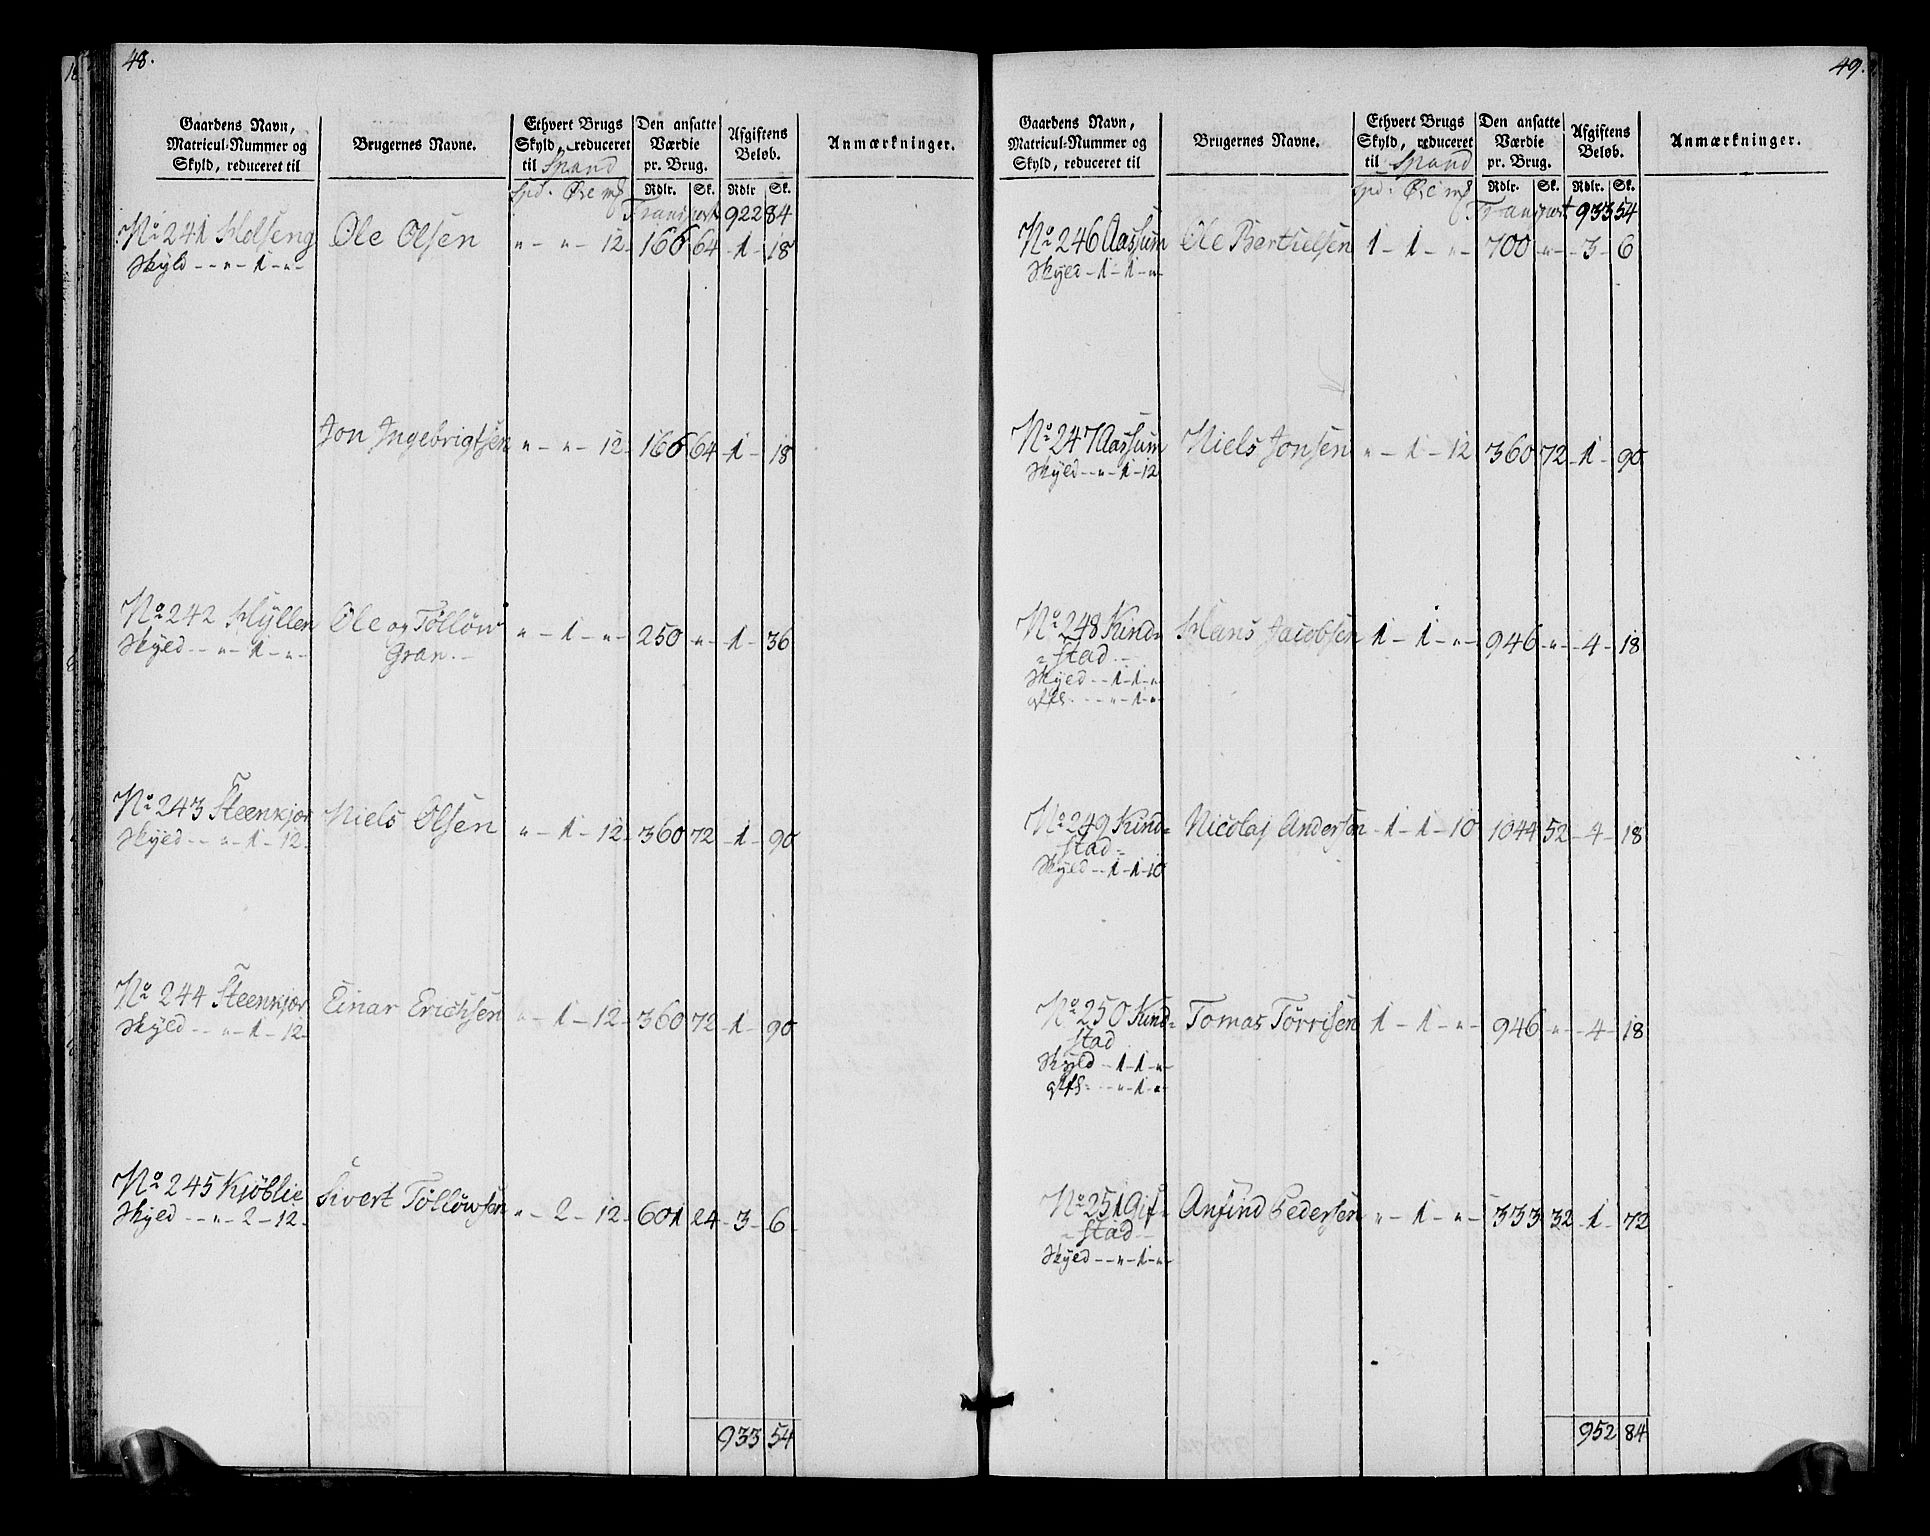 48.
Gaardens Navn,
Matricul-Nummer og
Skyld, reduceret til
Brugernes Navne.
Ethvert Brugs
Skyld, reduceret
til Spand
Den ansatte
Værdie
pr. Brug.
Afgiftens
Beløb.
Anmærkninger.
Spd. Øre mƒ Rdlr. Sk. Rdlr. Sk.
Transport 922 84
No 241 Holseng Ole Olsen „ - „ - 12 - 166 64 - 1 - 18
Skyld - - „ - 1 - „ -
Jon Ingebrigtsen „ - „ - 12 - 166 64 - 1 - 18
No 242 Hyllen Ole og Tølløw „ - 1 - „ - 250 - „ - 1 - 36
Skyld - - „ - 1 - „ - Gran. -
No 243 Steenkjær Niels Olsen „ - 1 - 12 - 360 72 - 1 - 90
Skyld - - „ - 1 - 12 -
No 244 Steenkjær Einar Erichsen „ - 1 - 12 - 360 72 - 1 - 90
Skyld - - „ - 1 - 12 -
No 245 Kjøblie Sivert Tølløwsen „ - 2 - 12 - 601 24 - 3 - 6 -
Skyld - - „ - 2 - 12 -
933 54
49.
Gaardens Navn,
Matricul-Nummer og
Skyld, reduceret til
Brugernes Navne.
Ethvert Brugs
Skyld, reduceret
til Spand
Den ansatte
Værdie
pr. Brug.
Afgiftens
Beløb.
Anmærkninger.
Spd. Øre mƒ Rdlr. Sk. Rdlr. Sk.
Transport 933 54
No 246 Aassum Ole Bertielsen 1 - 1 - „ - 700 - „ - 3 - 6
Skyld - 1 - 1 - „ -
No 247 Aassum Niels Jonsen „ - 1 - 12 360 72 - 1 - 90
Skyld - - „ - 1 - 12
No 248 Kind= Hans Jacobsen 1 - 1 - „ - 946 - „ - 4 - 18
= stad -
Skyld - - 1 - 1 - „ -
„ - 1 - „ -
No 249 Kind= Nicolaj Andersen - 1 - 1 - 10 1044 52 - 4 - 18
stad =
Skyld - - 1 - 1 - 10
No 250 Kind= Tomas Törrisen 1 - 1 - „ - 946 - „ - 4 - 18
stad
Skyld - 1 - 1 - „ -
„ - 1 - „
No 251 Gif= Anfind Pedersen „ - 1 - „ - 333 32 - 1 - 72
= stad -
Skyld - - „ - 1 - „ -
952 84